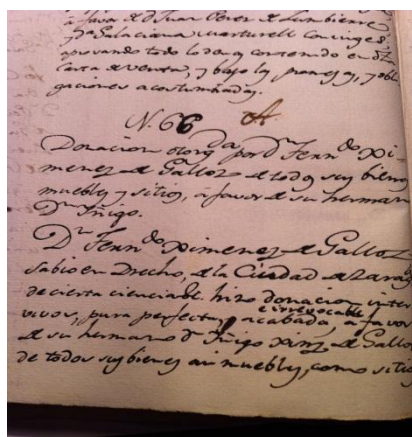 a favor de Dn Juan Perez de Lumbierre
y Da Salaciana Marturell Conyuges
aprovando todo lo dho y contenido en dha
Carta de venta, y bajo las promesas, y obli-
gaciones acostumbradas.
N. 66 A.
Donacion otorgda por Dn Ferndo Xi-
menez de Galloz de todos sus bienes
muebles y sitios, a favor de su herman
Dn Iñigo.
Dn Ferndo Ximenez de Galloz
Sabio en Drecho, de la Ciudad de Zarag
de cierta ciencia &c. hizo donacion inter
vivos, pura perfecta, e irrevocable acabada, a favor
de su hermano Dn Iñigo Ximz de Galloz
de todos sus bienes asi muebles, como sitio